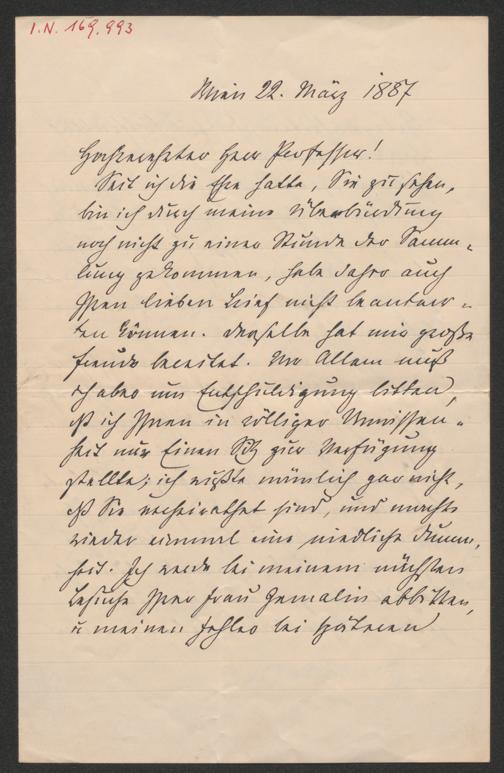 I.N. 169.993
Wien 22. März 1887
Hochverehrter Herr Professor!
Seit ich die Ehre hatte, Sie zu sehen,
bin ich durch meine Überbürdung
noch nicht zu einer Stunde der Samm-
lung gekommen, habe daher auch
Ihren lieben Brief nicht beantwor-
ten können. Derselbe hat mir große
Freude bereitet. Vor Allem muß
ich aber um Entschuldigung bitten,
daß ich Ihnen in völliger Unwissen-
heit nur Einen Sitz zur Verfügung
stellte; ich wußte nämlich gar nicht,
daß Sie verheirathet sind, und machte
wieder einmal eine niedliche Dumm-
heit. Ich werde bei meinem nächsten
Besuche Ihrer Frau Gemalin abbitten,
u meinen Fehler bei späteren